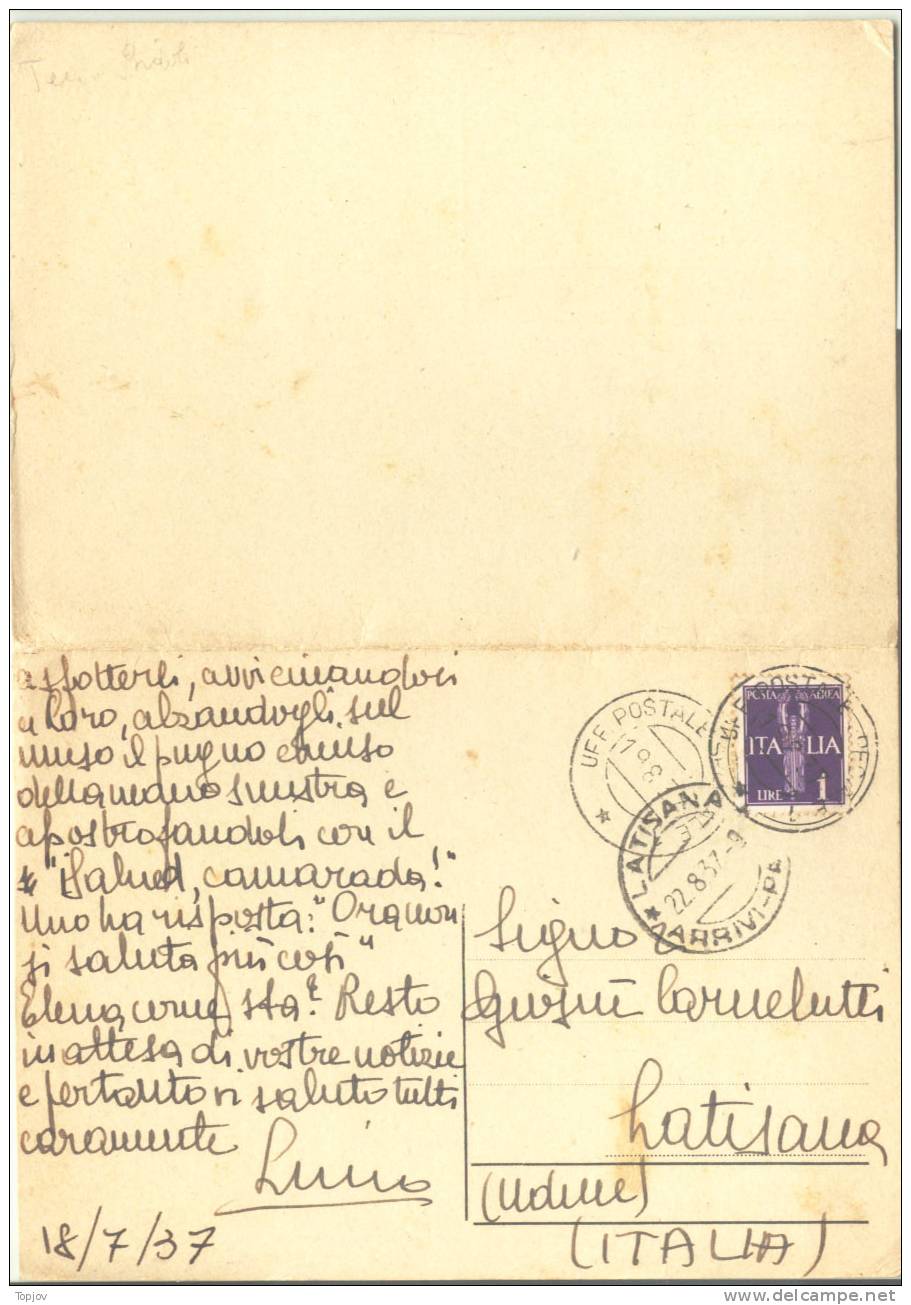 a sfotterli, avvicinandosi
a loro, alzandogli sul
muso il pugno chiuso
della mano sinistra e
apostrofandoli con il
"Salud, camarada!"
Uno ha risposto: "Ora non
si saluta più così"
Elena come sta? Resto
in attesa di vostre notizie
e pertanto vi saluto tutti
caramente
18/7/37
UFF. POSTALE
POSTA AEREA
ITALIA
LIRE 1
LATISANA
22.8.37-9
ARRIVI-PA
Signor
Carnelutti
Latisana
(Udine)
(ITALIA)
Topjov
delcampe.net